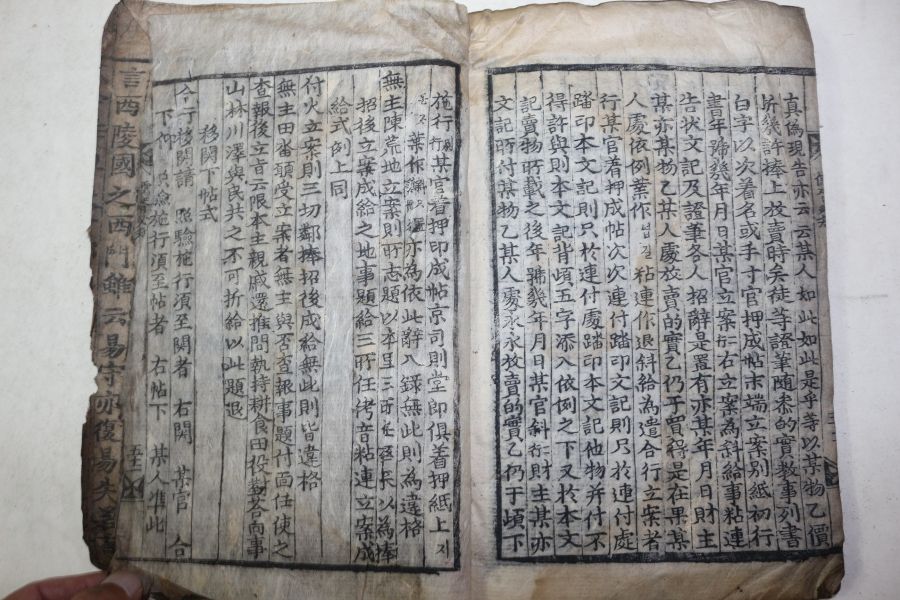 真偽現告亦云云某人如此如此是乎等以某物乙價
折幾許捧上放賣時矣徒等證筆隨參的實敎事列書
白字以次着名或手寸官押成帖末端立案別紙初行
書年號幾年月日某官立案行右立案爲斜給事粘連
告狀文記及證筆各人招辭是置有亦其年月日財主
某亦某物乙某人處放賣的實乙仍于賈得是在果某
人處依例業作 粘連作退斜給爲遣合行立案者
行某官着押成帖次次連付踏印文記則只於連付處
踏印本文記則只於連付處踏印本文記他物幷付不
得許與則本文記背頉五字添入依例之下又於本文
記賣物所載之後年號幾年月日其官斜行財主某亦
文記所付某物乙某人處永永放賣的實乙仍于頉下
施行行某官着押印成帖京司則堂郎俱着押紙上
葉作 亦爲依此辭入錄無此則爲違格
無主陳荒地立案則所志題以本里三所任以爲捧
招後立案成給之地事題給三所任侤音粘連立案成
給式例上同
付火立案則三切鄰捧招後成給無此則皆違格
無主田畓頉堂立案者無主與否查報事題付面任使之
查報後立旨云限本主親戚還推間執持耕食田役擧答向事
山林川澤與民共之不可折給以此題退
移關下帖式
合行移關請 照驗施行須至關者 右關 某官 合
下仰 照驗施行須至帖者 右帖下 某人準此
言西陵國之西門雖云易守亦復易失